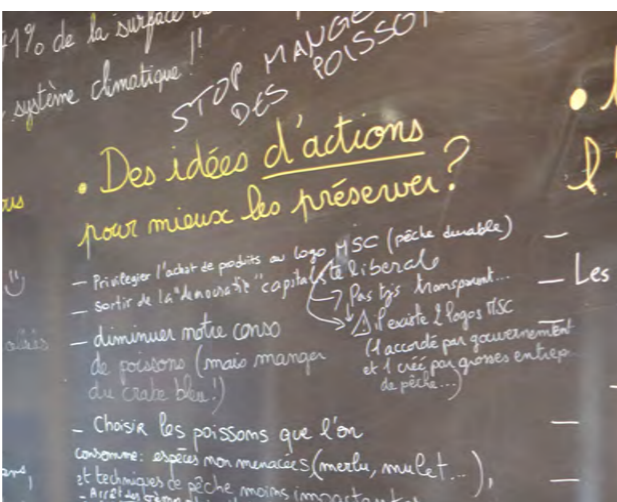 71% de la surface
système climatique !!
STOP MANGE
DES POISSO
• Des idées d'actions
pour mieux les préserver ?
— Privilegier l'achat de produits au logo MSC (pêche durable)
— Sortir de la "democratie" capitaliste libérale
Pas tjs transparent...
⚠ il existe 2 logos MSC
(1 accordé par gouvernement
et 1 créé par grosses entrep...
de pêche...)
— diminuer notre conso
de poissons (mais manger
du crabe bleu !)
— Choisir les poissons que l'on
consomme : espèces non menacées (merlu, mulet...),
et techniques de pêche moins impactantes
— Arrêt des
— Les